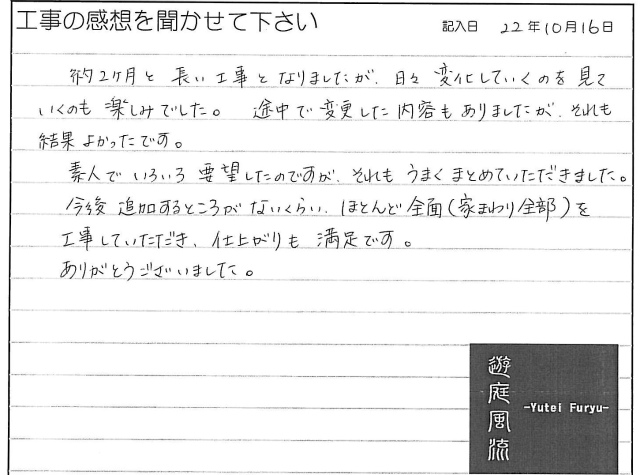 工事の感想を聞かせて下さい
記入日 22年10月16日
約2ヶ月と長い工事となりましたが、日々変化していくのを見て
いくのも楽しみでした。 途中で変更した内容もありましたが、それも
結果よかったです。
素人でいろいろ要望したのですが、それもうまくまとめていただきました。
今後追加するところがないくらい、ほとんど全面(家まわり全部)を
工事していただき、仕上がりも満足です。
ありがとうございました。
遊庭風流
-Yutei Furyu-